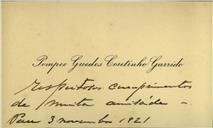 Pompeo Guedes Coutinho Garrido
respeitosos cumprimentos
de muita amizade -
3 novembro 1921